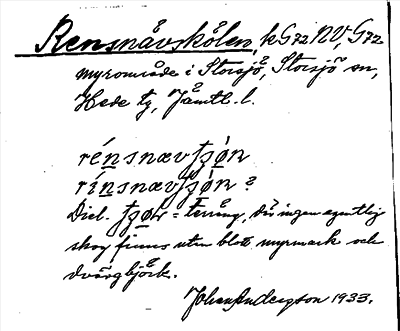 Rensnåvskölen, k G 72 NV, G 72
myrområde i Storsjö, Storsjö sn,
Hede tg, Jämtl. l.
rénsnævfʒøn
rínsnævfʒøn?
Dial. fʒøn = terräng, där ingen egentlig
skog finns utan blott myrmark och
dvärgbjörk.
Johan Anderzson 1933.